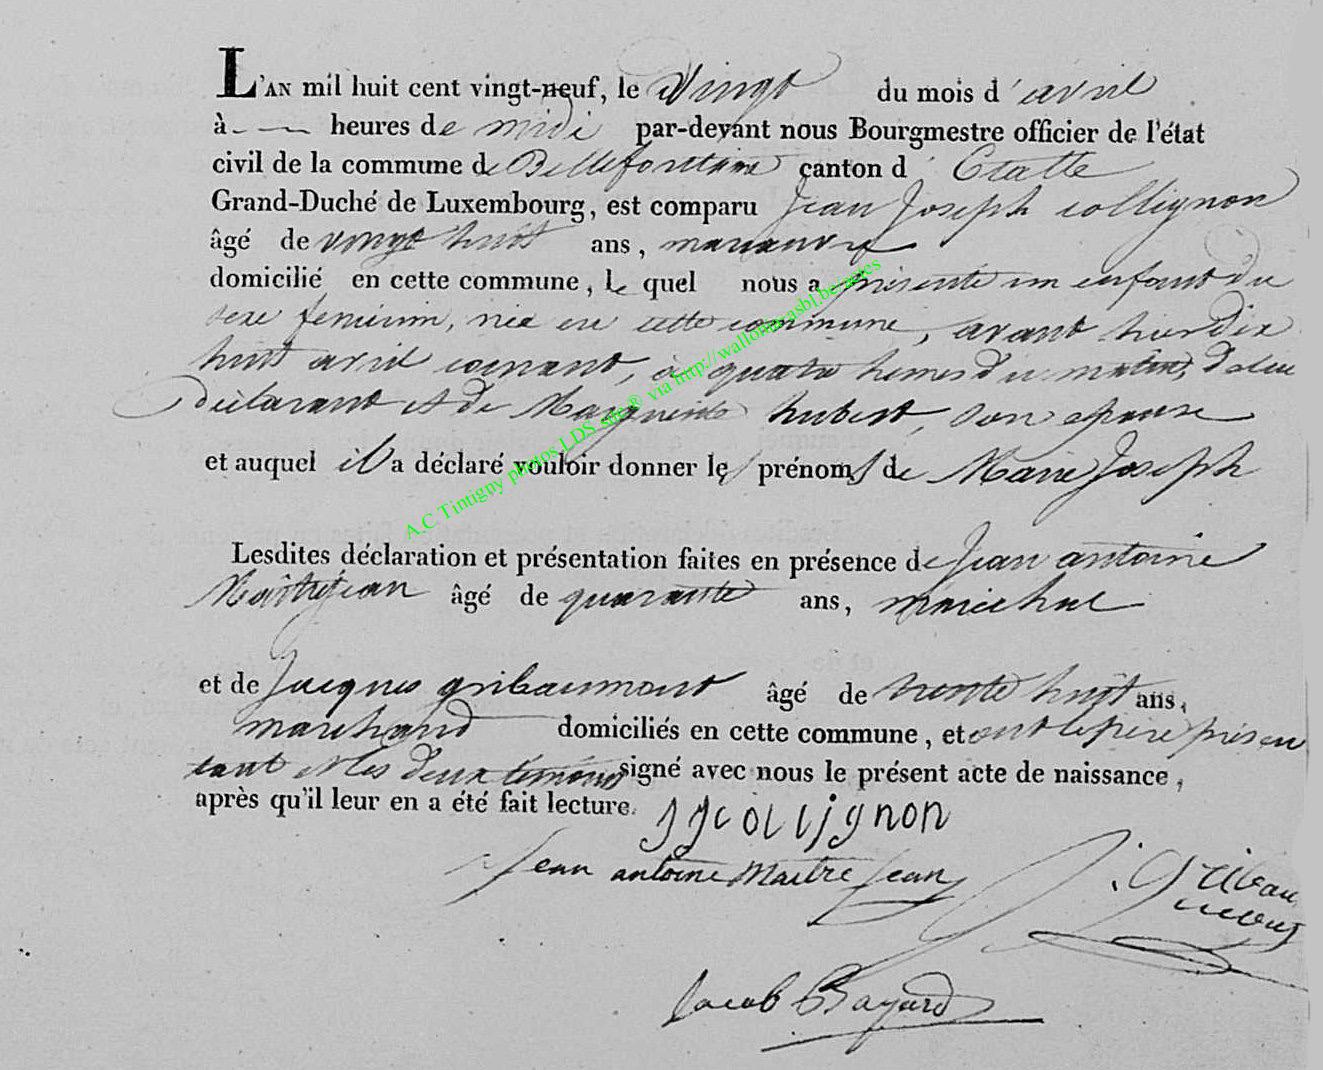 L'AN mil huit cent vingt-neuf, le vingt du mois d'avril
à — heures de midi par-devant nous Bourgmestre officier de l'état
civil de la commune de Bellefontaine canton d'Etalle
Grand-Duché de Luxembourg, est comparu Jean Joseph collignon
âgé de vingt huit ans, manœuvre
domicilié en cette commune, le quel nous a présenté un enfant du
sexe feminin, née en cette commune, avant hier dix
huit avril courant, à quatre heures du matin, de lui
déclarant et de Marguerite hubert, son epouse
et auquel il a déclaré vouloir donner les prénoms de Marie Joseph
Lesdites déclaration et présentation faites en présence de Jean antoine
Maîtrejean âgé de quarante ans, maréchal
et de Jacques gribaumont âgé de trente huit ans,
marchand domiciliés en cette commune, et ont le père présen
tant et les deux témoins signé avec nous le présent acte de naissance,
après qu'il leur en a été fait lecture.
JJ collignon
Jean antoine Maitre Jean
J. Gribau
mont
Jacob Bayard
A.C Tintigny photos LDS site® via http://wallonia.asbl.be/actes